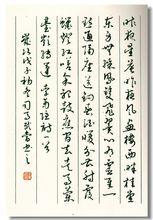 昨夜星辰昨夜風畫樓西畔桂堂
東身無彩鳳雙飛翼心有靈犀一
點通隔座送鉤春酒暖分曹射覆
蠟燈紅嗟余聽鼓應官去走馬蘭
臺類轉蓬 詩一首
歲次戊子初冬